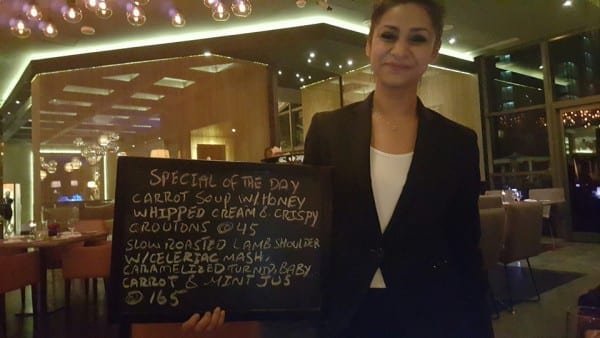 SPECIAL OF THE DAY
CARROT SOUP W/HONEY
WHIPPED CREAM & CRISPY
CROUTONS @ 45
SLOW ROASTED LAMB SHOULDER
W/CELERIAC MASH,
CARAMELIZED TURNIP, BABY
CARROT & MINT JUS
@ 165